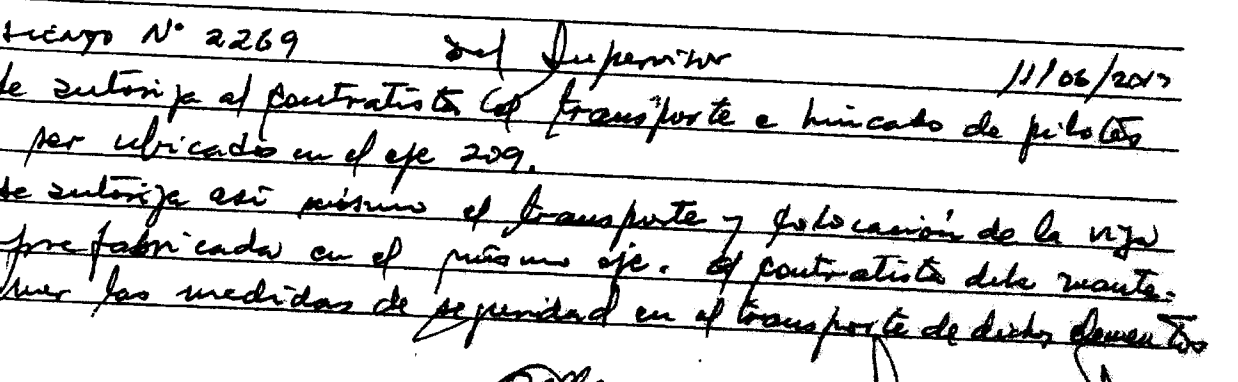 Asiento N° 2269 del Supervisor 11/06/2013
se autoriza al contratista el transporte e hincado de pilotes
ser ubicados en el eje 209.
se autoriza así mismo el transporte y colocación de la viga
prefabricada en el mismo eje. El contratista debe mante-
ner las medidas de seguridad en el transporte de dichos elementos